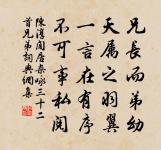 兄長而弟幼
天屬之羽翼
一言在有序
不可事私鬩
陳淳閒居雜咏三十二
首兄弟詞典網集